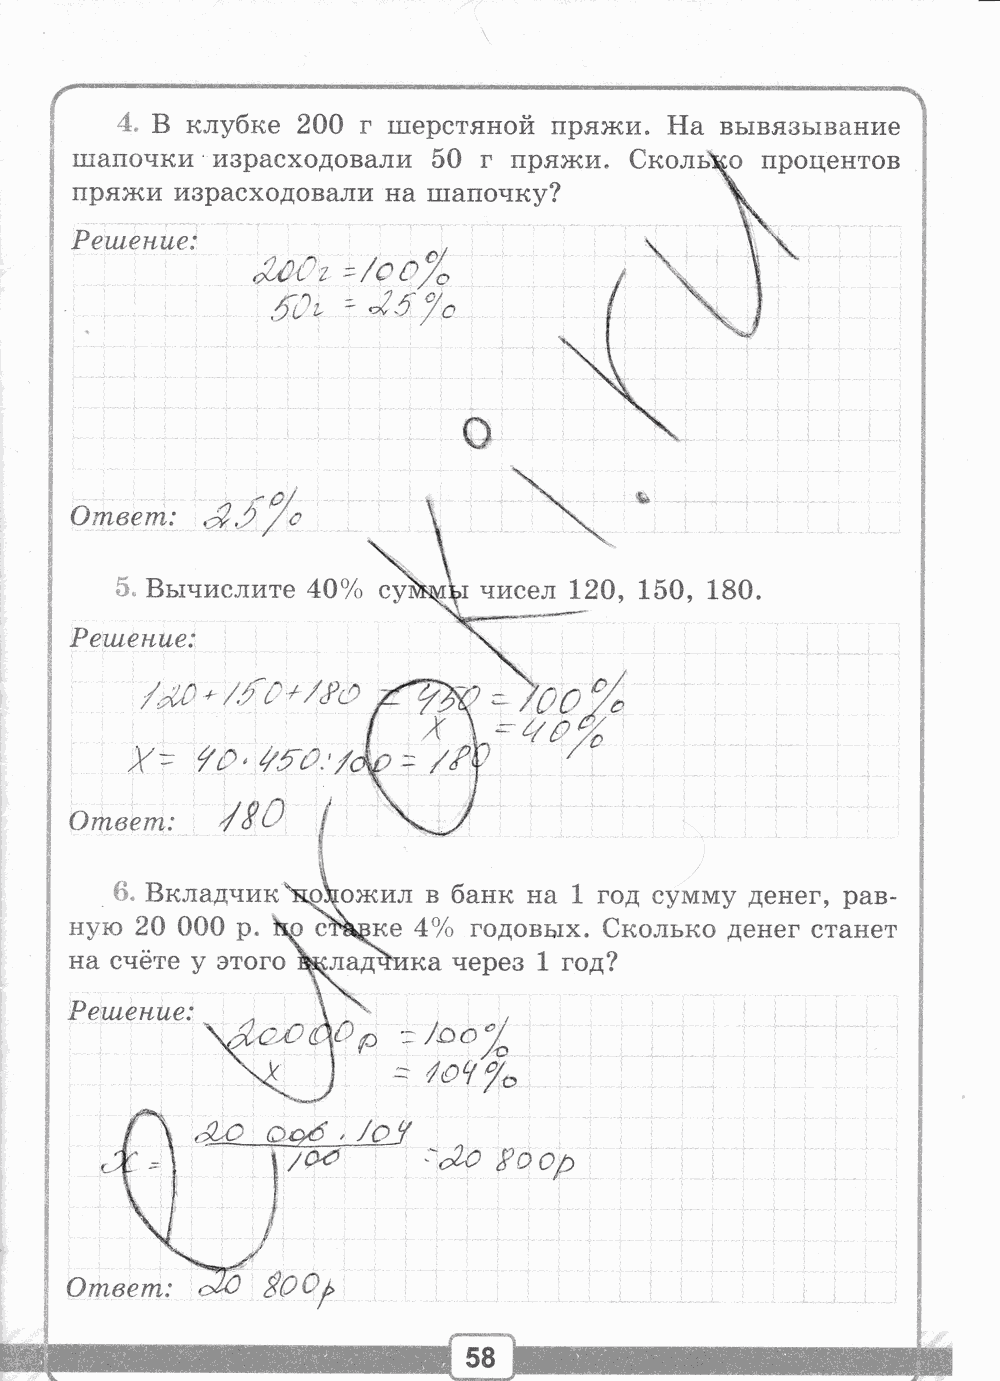 4. В клубке 200 г шерстяной пряжи. На вывязывание
шапочки израсходовали 50 г пряжи. Сколько процентов
пряжи израсходовали на шапочку?
Решение:
200г = 100%
50г = 25%
Ответ: 25%
5. Вычислите 40% суммы чисел 120, 150, 180.
Решение:
120+150+180 = 450 = 100%
X = 40%
X = 40·450:100 = 180
Ответ: 180
6. Вкладчик положил в банк на 1 год сумму денег, рав-
ную 20 000 р. по ставке 4% годовых. Сколько денег станет
на счёте у этого вкладчика через 1 год?
Решение:
20000р = 100%
X = 104%
20 000 · 104
X = 100 = 20 800р
Ответ: 20 800р
58